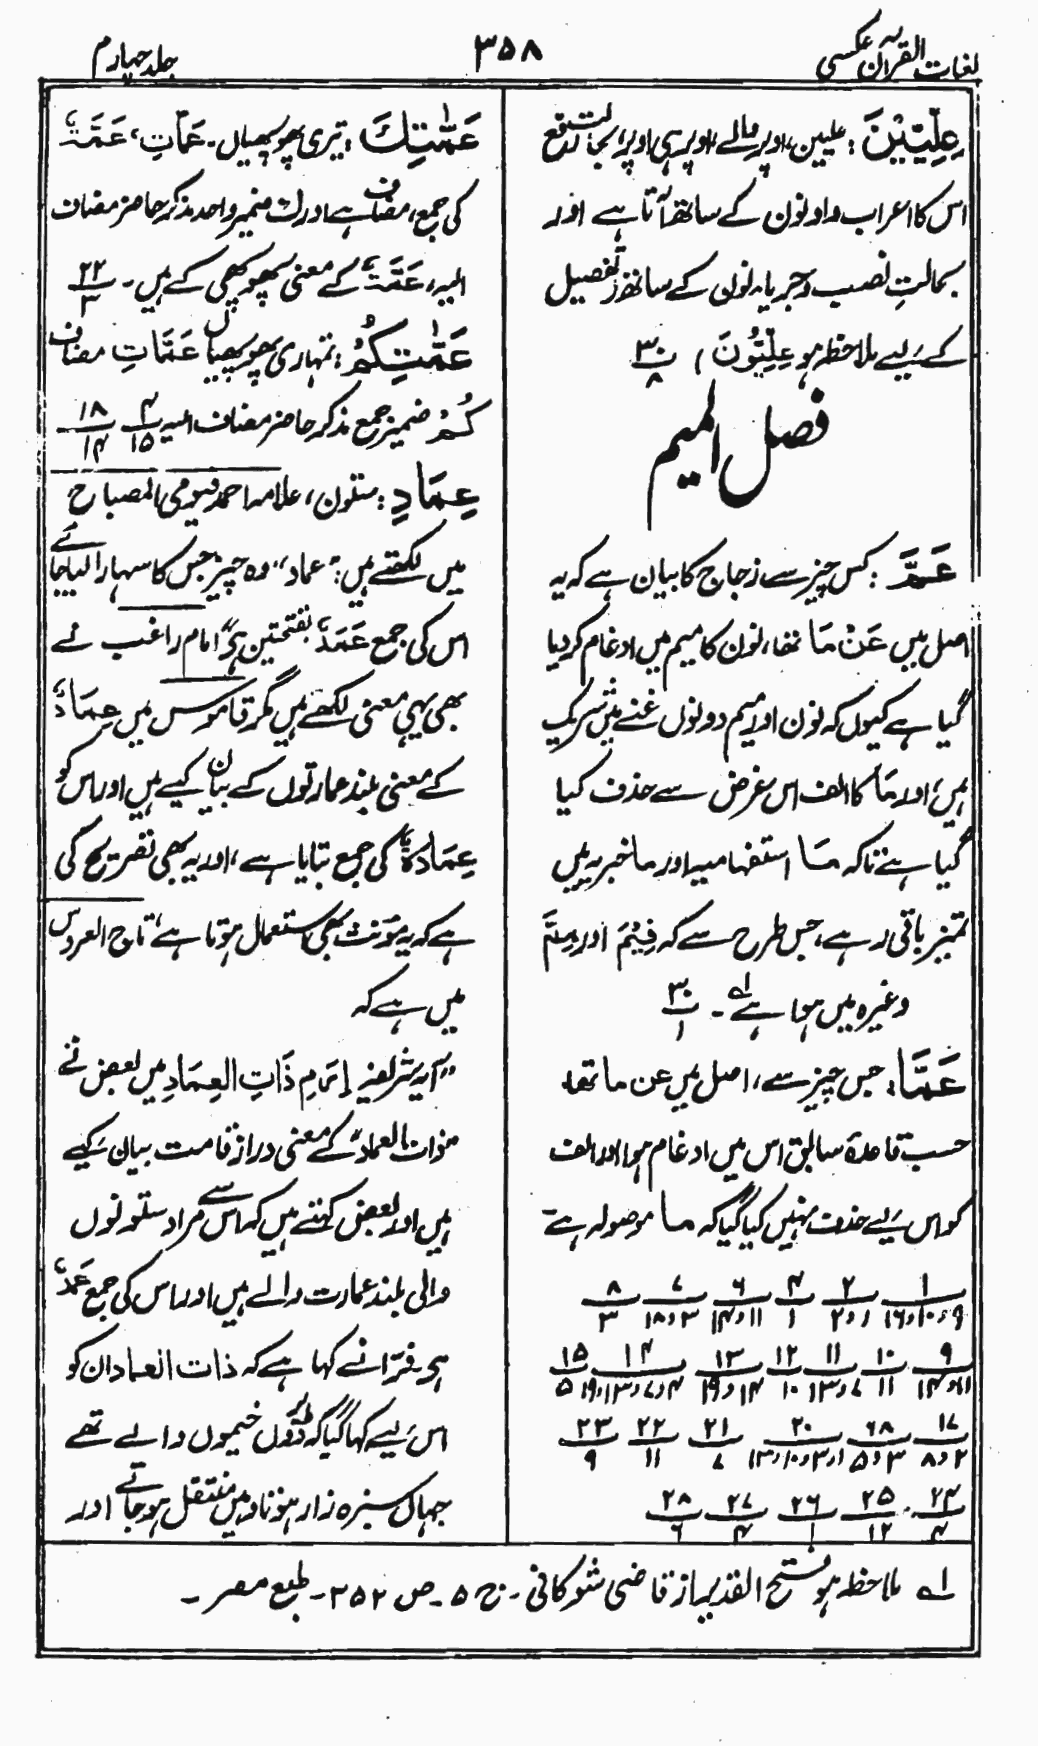 لغات القرآن عکسی
۳۵۸
جلد چہارم
عِلِّیّیْنَ: علیین، اوپر والے، اوپر ہی اوپر، بحالت رفع
اس کا اعراب واو نون کے ساتھ آتا ہے اور
بحالتِ نصب و جر یاء نون کے ساتھ (تفصیل
کے لیے ملاحظہ ہو عِلِّیُّوْنَ) ۳۰/۸
فصل المیم
عَمَّ: کس چیز سے، زجاج کا بیان ہے کہ یہ
اصل میں عَنْ مَا تھا، نون کا میم میں ادغام کردیا
گیا ہے کیوں کہ نون اور میم دونوں غنے میں شریک
ہیں، اور مَا کا الف اس غرض سے حذف کیا
گیا ہے تاکہ مَا استفہامیہ اور ما خبریہ میں
تمیز باقی رہے، جس طرح سے کہ فِیْمَ اور مِمَّ
وغیرہ میں ہوا ہے لہ۔ ۳۰/۱
عَمَّا: جس چیز سے، اصل میں عن ما تھا،
حسب قاعدۂ سابق اس میں ادغام ہوا اور الف
کو اس لیے حذف نہیں کیا گیا کہ ما موصولہ ہے
۱/۹و۱۰و۱۶ ۲/۱و۲ ۴/۱ ۶/۱۱و۱۴ ۷/۳و۱۸ ۸/۳
۹/۱۱و۱۴ ۱۰/۱۱ ۱۱/۷و۱۳ ۱۲/۱۰ ۱۳/۱۴و۱۹ ۱۴/۴و۷و۱۳و۱۹ ۱۵/۵
۱۷/۲و۸ ۱۸/۳و۵ ۲۰/۱و۳و۱۰و۱۳ ۲۱/۷ ۲۲/۱۱ ۲۳/۹
۲۴/۴ ۲۵/۱۲ ۲۶/۱ ۲۷/۴ ۲۸/۶
عَمّٰتِكَ: تیری پھوپھیاں۔ عَمَّاتِ، عَمَّۃٌ
کی جمع، مضاف ہے اور ك ضمیر واحد مذکر حاضر مضاف
الیہ، عَمَّۃٌ کے معنی پھوپھی کے ہیں۔ ۲۲/۳
عَمّٰتِكُمْ: تمہاری پھوپھیاں عَمَّاتِ مضاف
كُمْ ضمیر جمع مذکر حاضر مضاف الیہ ۴/۱۵ ۱۸/۱۴
عِمَادِ: ستون، علامہ احمد فیومی المصباح
میں لکھتے ہیں: "عماد" وہ چیز جس کا سہارا لیا جائے
اس کی جمع عَمَدٌ بفتحتین ہے" امام راغب نے
بھی یہی معنی لکھے ہیں مگر قاموس میں عِمَادٌ
کے معنی بلند عمارتوں کے بیان کیے ہیں اور اس کو
عِمَادَۃٌ کی جمع بتایا ہے، اور یہ بھی تصریح کی
ہے کہ یہ مؤنث بھی استعمال ہوتا ہے، تاج العروس
میں ہے کہ
"آیۂ شریفہ إِرَمِ ذَاتِ الْعِمَادِ میں بعض نے
"ذات العماد" کے معنی دراز قامت بیان کیے
ہیں اور بعض کہتے ہیں کہ اس سے مراد ستونوں
والی بلند عمارت والے ہیں اور اس کی جمع عَمَدٌ
ہے، فرّا نے کہا ہے کہ ذات العماد ان کو
اس لیے کہا گیا کہ وہ لوگ خیموں والے تھے
جہاں سبزہ زار ہوتا وہیں منتقل ہو جاتے اور
لہ ملاحظہ ہو فتح القدیر از قاضی شوکانی۔ ج ۵۔ ص ۳۵۲۔ طبع مصر۔